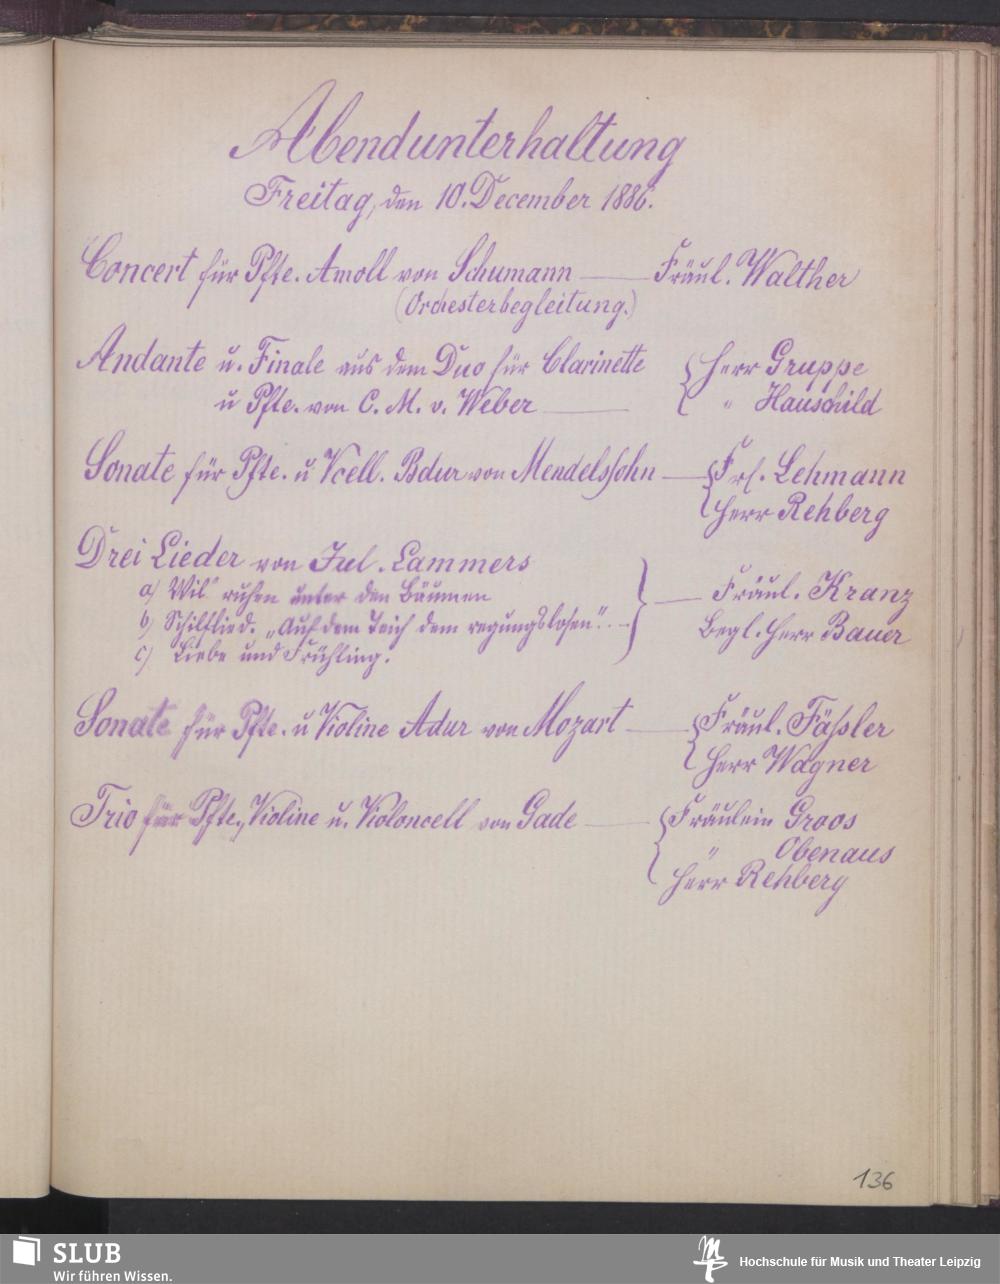 Abendunterhaltung
Freitag, den 10. December 1886.
Concert für Pfte. Amoll von Schumann — Fräul. Walther
(Orchesterbegleitung.)
Andante u. Finale aus dem Duo für Clarinette { Herr Gruppe
u Pfte. von C. M. v. Weber — " Hauschild
Sonate für Pfte. u Vcell. Bdur von Mendelssohn — { Frl. Lehmann
Herr Rehberg
Drei Lieder von Jul. Lammers
a) Will ruhen unter den Bäumen } — Fräul. Kranz
b) Schilflied. „Auf dem Teich dem regungslosen“. Begl. Herr Bauer
c) Liebe und Frühling.
Sonate für Pfte. u Violine Adur von Mozart — { Fräul. Fässler
Herr Wagner
Trio für Pfte., Violine u. Violoncell von Gade — { Fräulein Groos
" Obenaus
Herr Rehberg
136
SLUB
Wir führen Wissen.
Hochschule für Musik und Theater Leipzig